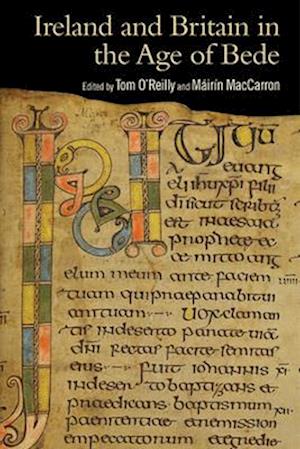 Ireland and Britain in
the Age of Bede
Edited by Tom O'Reilly and Máirín MacCarron
euang
elii ihu xpi filii
di sicut scribt
est in esaia
prophete ec
ce mitto ang
elum meum ante faciem
tuam qui praeparabit ui
am tuam · uox claman
tis in deserto parate uia
dni rectas facite semitas
eius fuit iohannis in
deserto baptizans et
praedicans baptismum
paenitentiae in remission
peccatorum et egredie